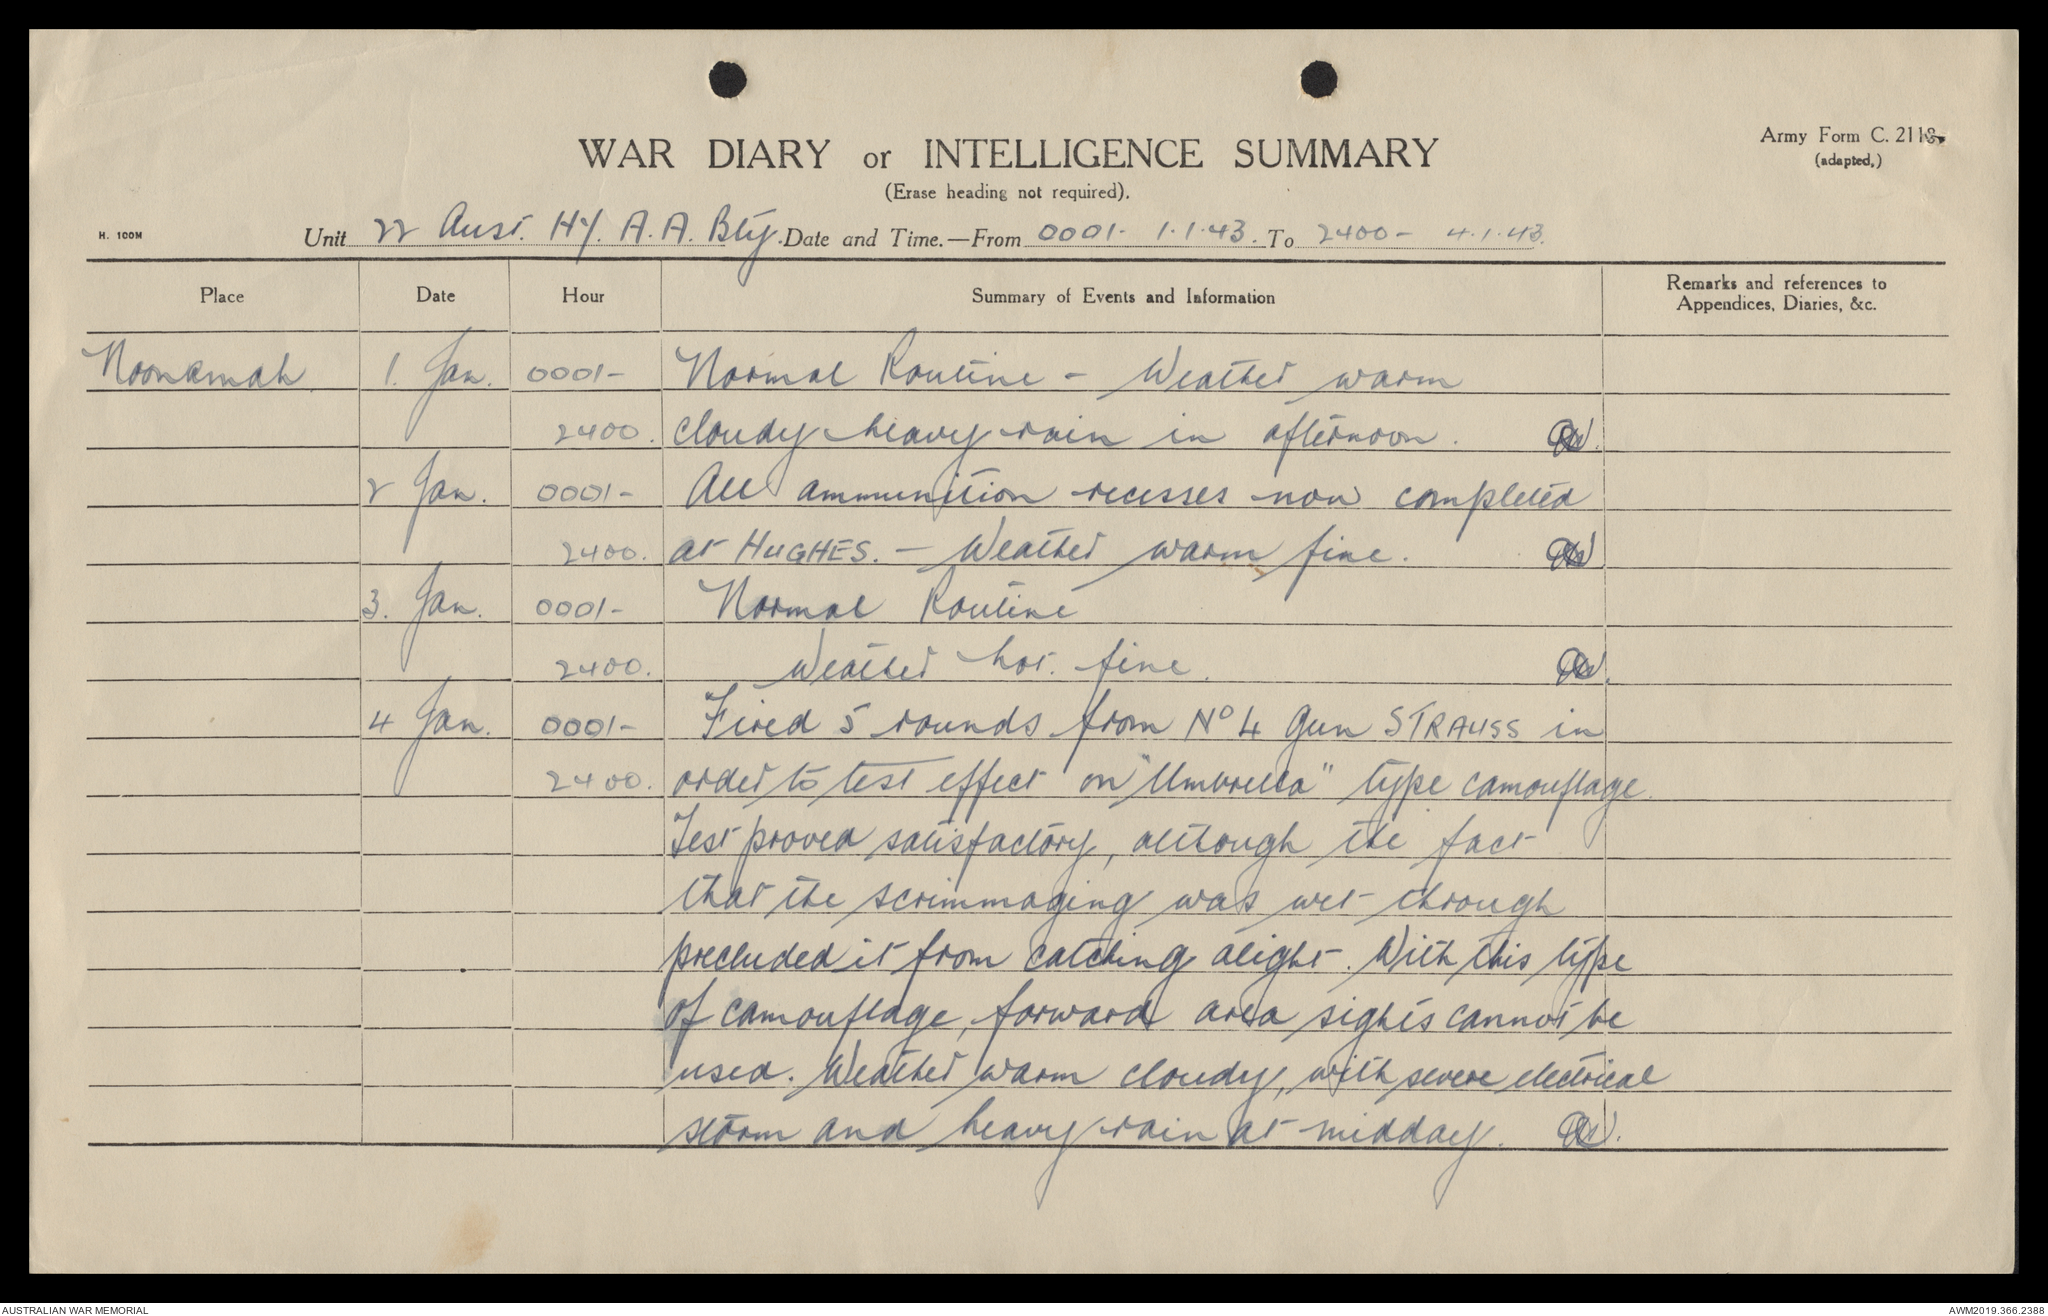 Army Form C. 2118.
(adapted.)
WAR DIARY or INTELLIGENCE SUMMARY
(Erase heading not required).
H. 100M
Unit 22 Aust. Hy. A.A. Bty. Date and Time.—From 0001- 1.1.43. To 2400- 4.1.43.
Place Date Hour Summary of Events and Information Remarks and references to Appendices, Diaries, &c.
Noonamah 1. Jan. 0001- Normal Routine - Weather warm
2400. cloudy heavy rain in afternoon.
2 Jan. 0001- All ammunition recesses now completed
2400. at HUGHES. - Weather warm fine.
3. Jan. 0001- Normal Routine
2400. Weather hot. fine.
4 Jan. 0001- Fired 5 rounds from No 4 gun STRAUSS in
2400. order to test effect on "Umbrella" type camouflage.
Test proved satisfactory, although the fact
that the scrimmaging was wet through
precluded it from catching alight. With this type
of camouflage, forward area sights cannot be
used. Weather warm cloudy, with severe electrical
storm and heavy rain at midday.
AUSTRALIAN WAR MEMORIAL AWM2019.366.2388